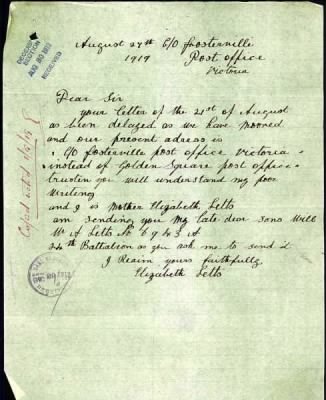 August 27th C/O Fosterville
1919 Post office
Victoria
RECEIVED
AUG 30 1919
Dear Sir
your letter of the 21st of August
as been delayed as we have mooved
and our present adress is
C/O Fosterville post office Victoria
instead of Golden Square post office
trustin you will understand my poor
Writing
and I is Mother Elizabeth Letts
am sending you my late dear sons Will
W A Letts No 6943 A
24th Battalion as you ask me to send it
I Reaim yours faithfully
Elizabeth Letts